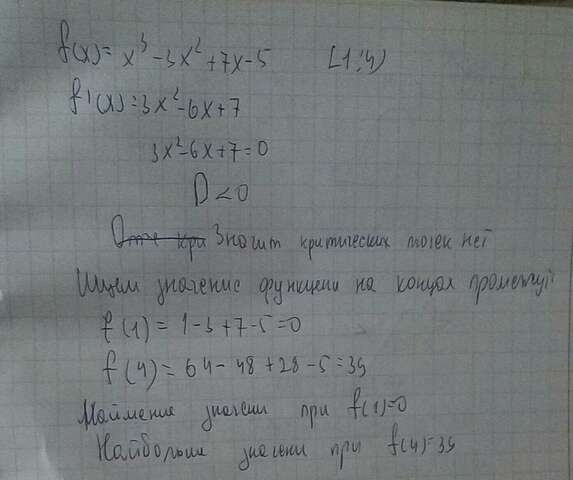 f(x)= x³-3x²+7x-5 [1;4]
f'(x)=3x²-6x+7
3x²-6x+7=0
D<0
Значит критических точек нет
Ищем значение функции на концах промежут
f(1)=1-3+7-5=0
f(4)=64-48+28-5=39
Наймение значени при f(1)=0
Найбольше значени при f(4)=39